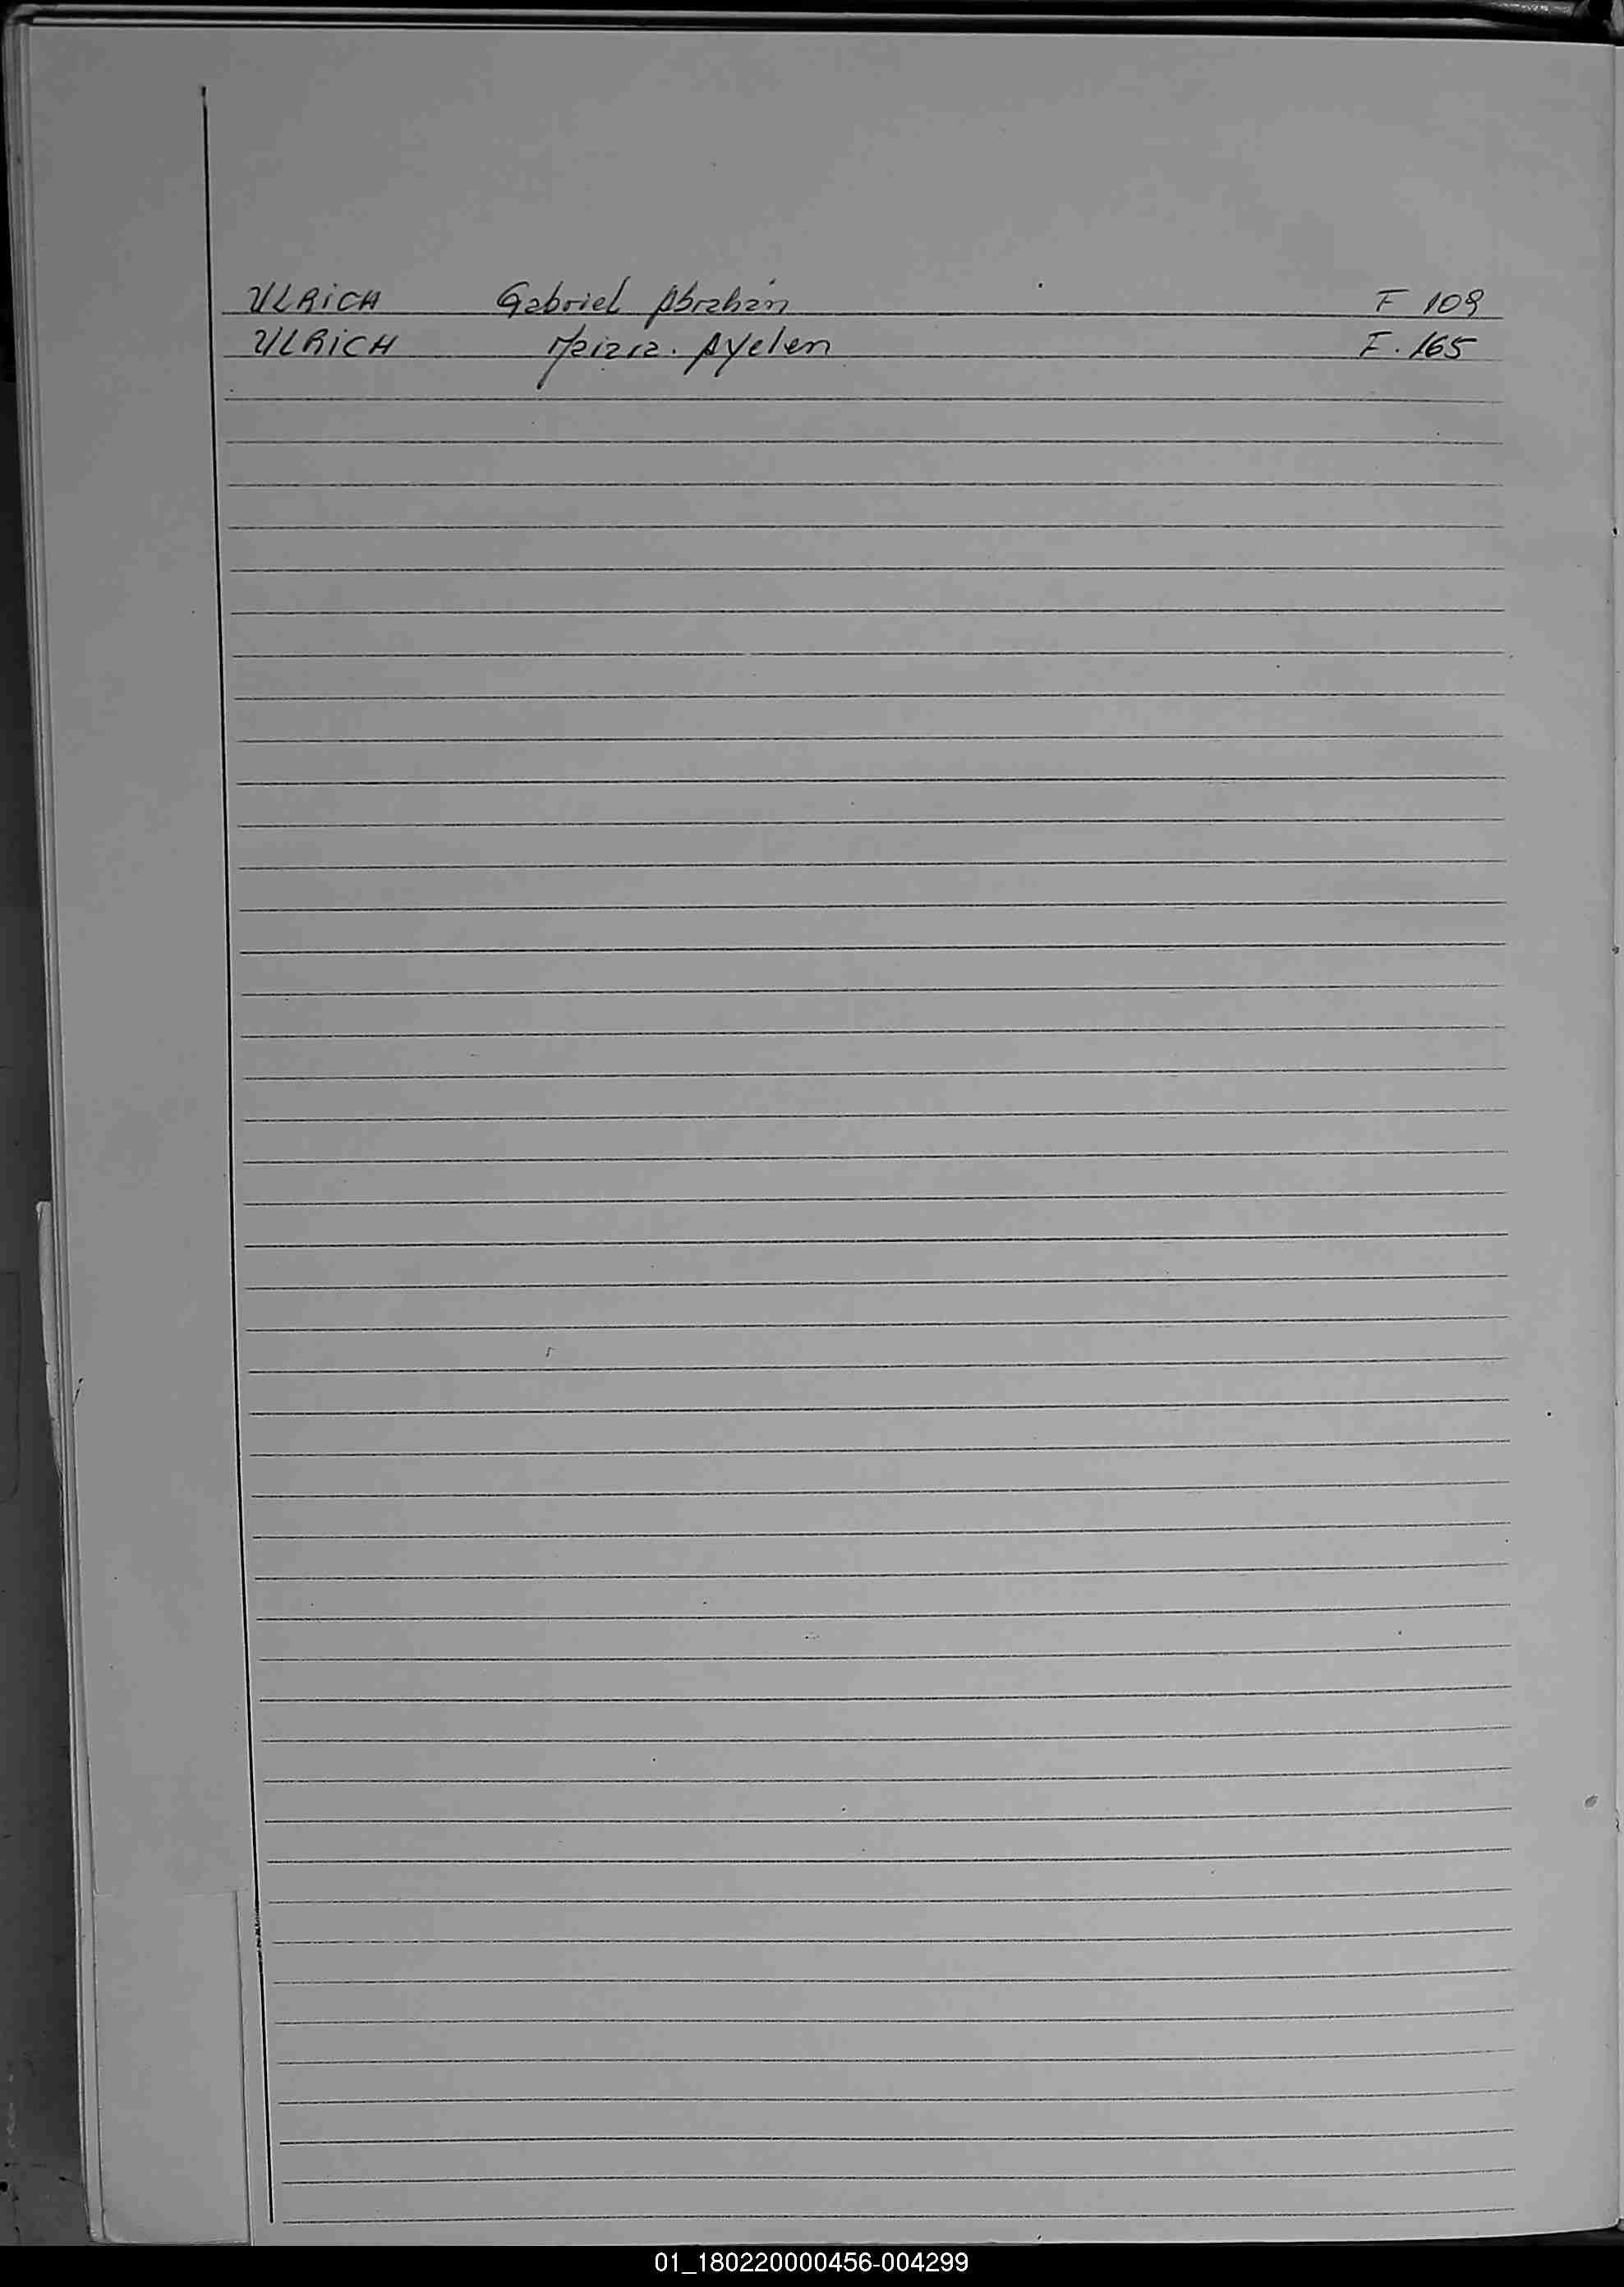 ULRiCH Gabriel Abrahán F 109
ULRiCH Ayelen F. 165
01_180220000456-004299